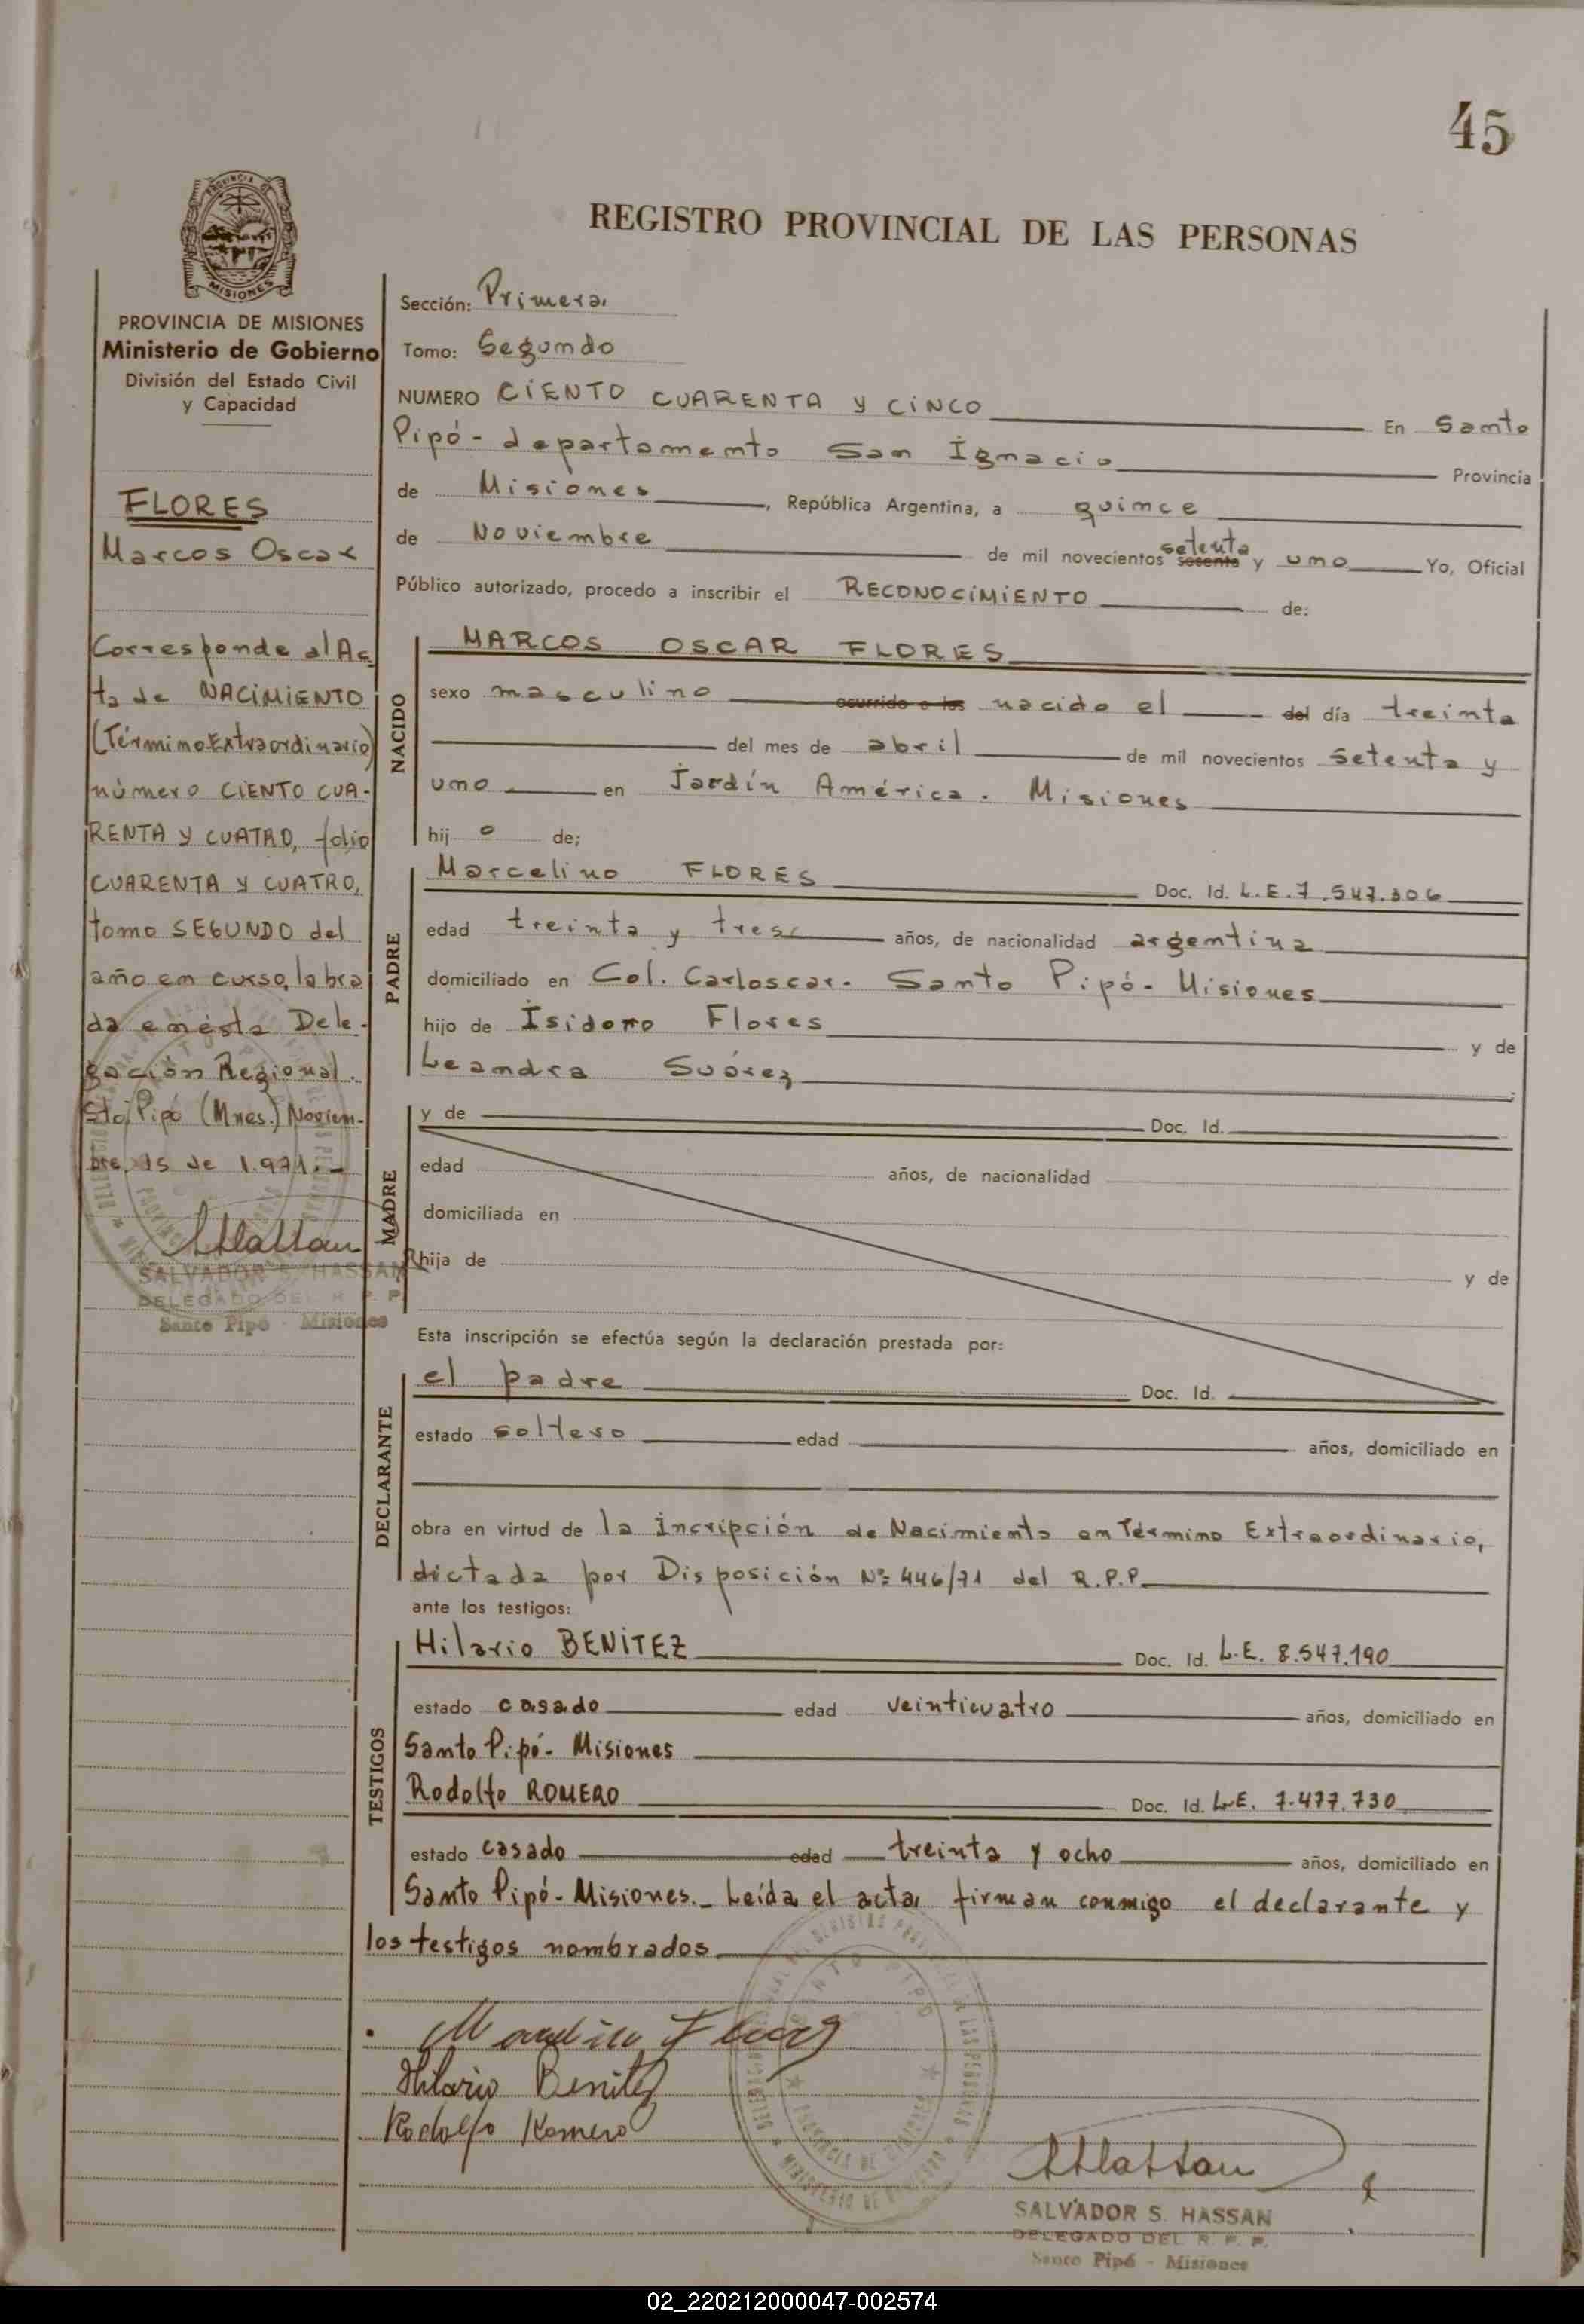 45
REGISTRO PROVINCIAL DE LAS PERSONAS
PROVINCIA DE MISIONES
Ministerio de Gobierno
División del Estado Civil
y Capacidad
FLORES
Marcos Oscar
Corresponde al Ac
ta de NACIMIENTO
(Término Extraordinario)
número CIENTO CUA-
RENTA Y CUATRO, folio
CUARENTA Y CUATRO,
tomo SEGUNDO del
año en curso, labra
da en ésta Dele-
gación Regional.
Sto. Pipó (Mnes.) Noviem-
bre, 15 de 1.971.-
SALVADOR S. HASSAN
DELEGADO DEL R. P. P.
Santo Pipó - Misiones
Sección: Primera
Tomo: Segundo
NUMERO CIENTO CUARENTA Y CINCO En Santo
Pipó - departamento San Ignacio Provincia
de Misiones, República Argentina, a quince
de Noviembre de mil novecientos sesenta setenta y uno Yo, Oficial
Público autorizado, procedo a inscribir el RECONOCIMIENTO de:
NACIDO
MARCOS OSCAR FLORES
sexo masculino ocurrido a las nacido el del día treinta
del mes de abril de mil novecientos setenta y
uno en Jardín América. Misiones
hij o de;
PADRE
Marcelino FLORES Doc. Id. L.E. 7.547.306
edad treinta y tres años, de nacionalidad argentina
domiciliado en Col. Carloscar. Santo Pipó - Misiones
hijo de Isidoro Flores y de
Leandra Suárez
MADRE
y de Doc. Id.
edad años, de nacionalidad
domiciliada en
hija de y de
Esta inscripción se efectúa según la declaración prestada por:
DECLARANTE
el padre Doc. Id.
estado soltero edad años, domiciliado en
obra en virtud de la Incripción de Nacimiento en Término Extraordinario,
dictada por Disposición Nº 446/71 del R.P.P.
ante los testigos:
TESTIGOS
Hilario BENITEZ Doc. Id. L.E. 8.547.190
estado casado edad veinticuatro años, domiciliado en
Santo Pipó - Misiones
Rodolfo ROMERO Doc. Id. L.E. 7.477.730
estado casado edad treinta y ocho años, domiciliado en
Santo Pipó - Misiones. - Leída el acta, firman conmigo el declarante y
los testigos nombrados
Hilario Benitez
Rodolfo Romero
SALVADOR S. HASSAN
DELEGADO DEL R. P. P.
Santo Pipó - Misiones
02_220212000047-002574